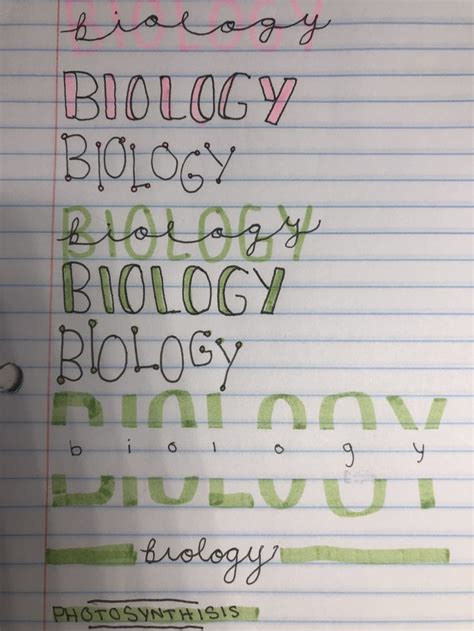 BIOLOGY
biology
BIOLOGY
BIOLOGY
BIOLOGY
biology
BIOLOGY
BIOLOGY
BIOLOGY
b i o l o g y
biology
PHOTOSYNTHISIS